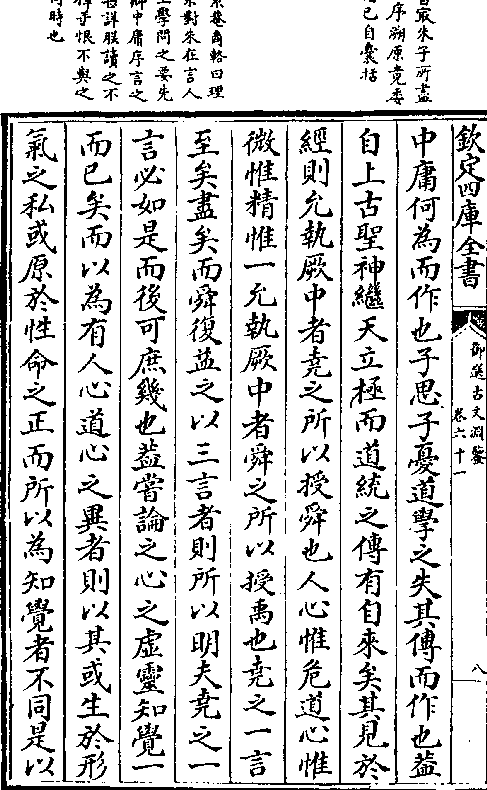 欽定四庫全書
御選古文淵鑒
卷六十一
八
中庸何為而作也子思子憂道學之失其傳而作也葢
自上古聖神繼天立極而道統之傳有自來矣其見於
經則允執厥中者堯之所以授舜也人心惟危道心惟
微惟精惟一允執厥中者舜之所以授禹也堯之一言
至矣盡矣而舜復益之以三言者則所以明夫堯之一
言必如是而後可庶幾也葢嘗論之心之虛靈知覺一
而已矣而以為有人心道心之異者則以其或生於形
氣之私或原於性命之正而所以為知覺者不同是以
朱子所盡
序溯原竟委
已自囊括
曰理
對朱在言人
學問之要先
中庸序言之
詳朕讀之不
恨不與之
時也